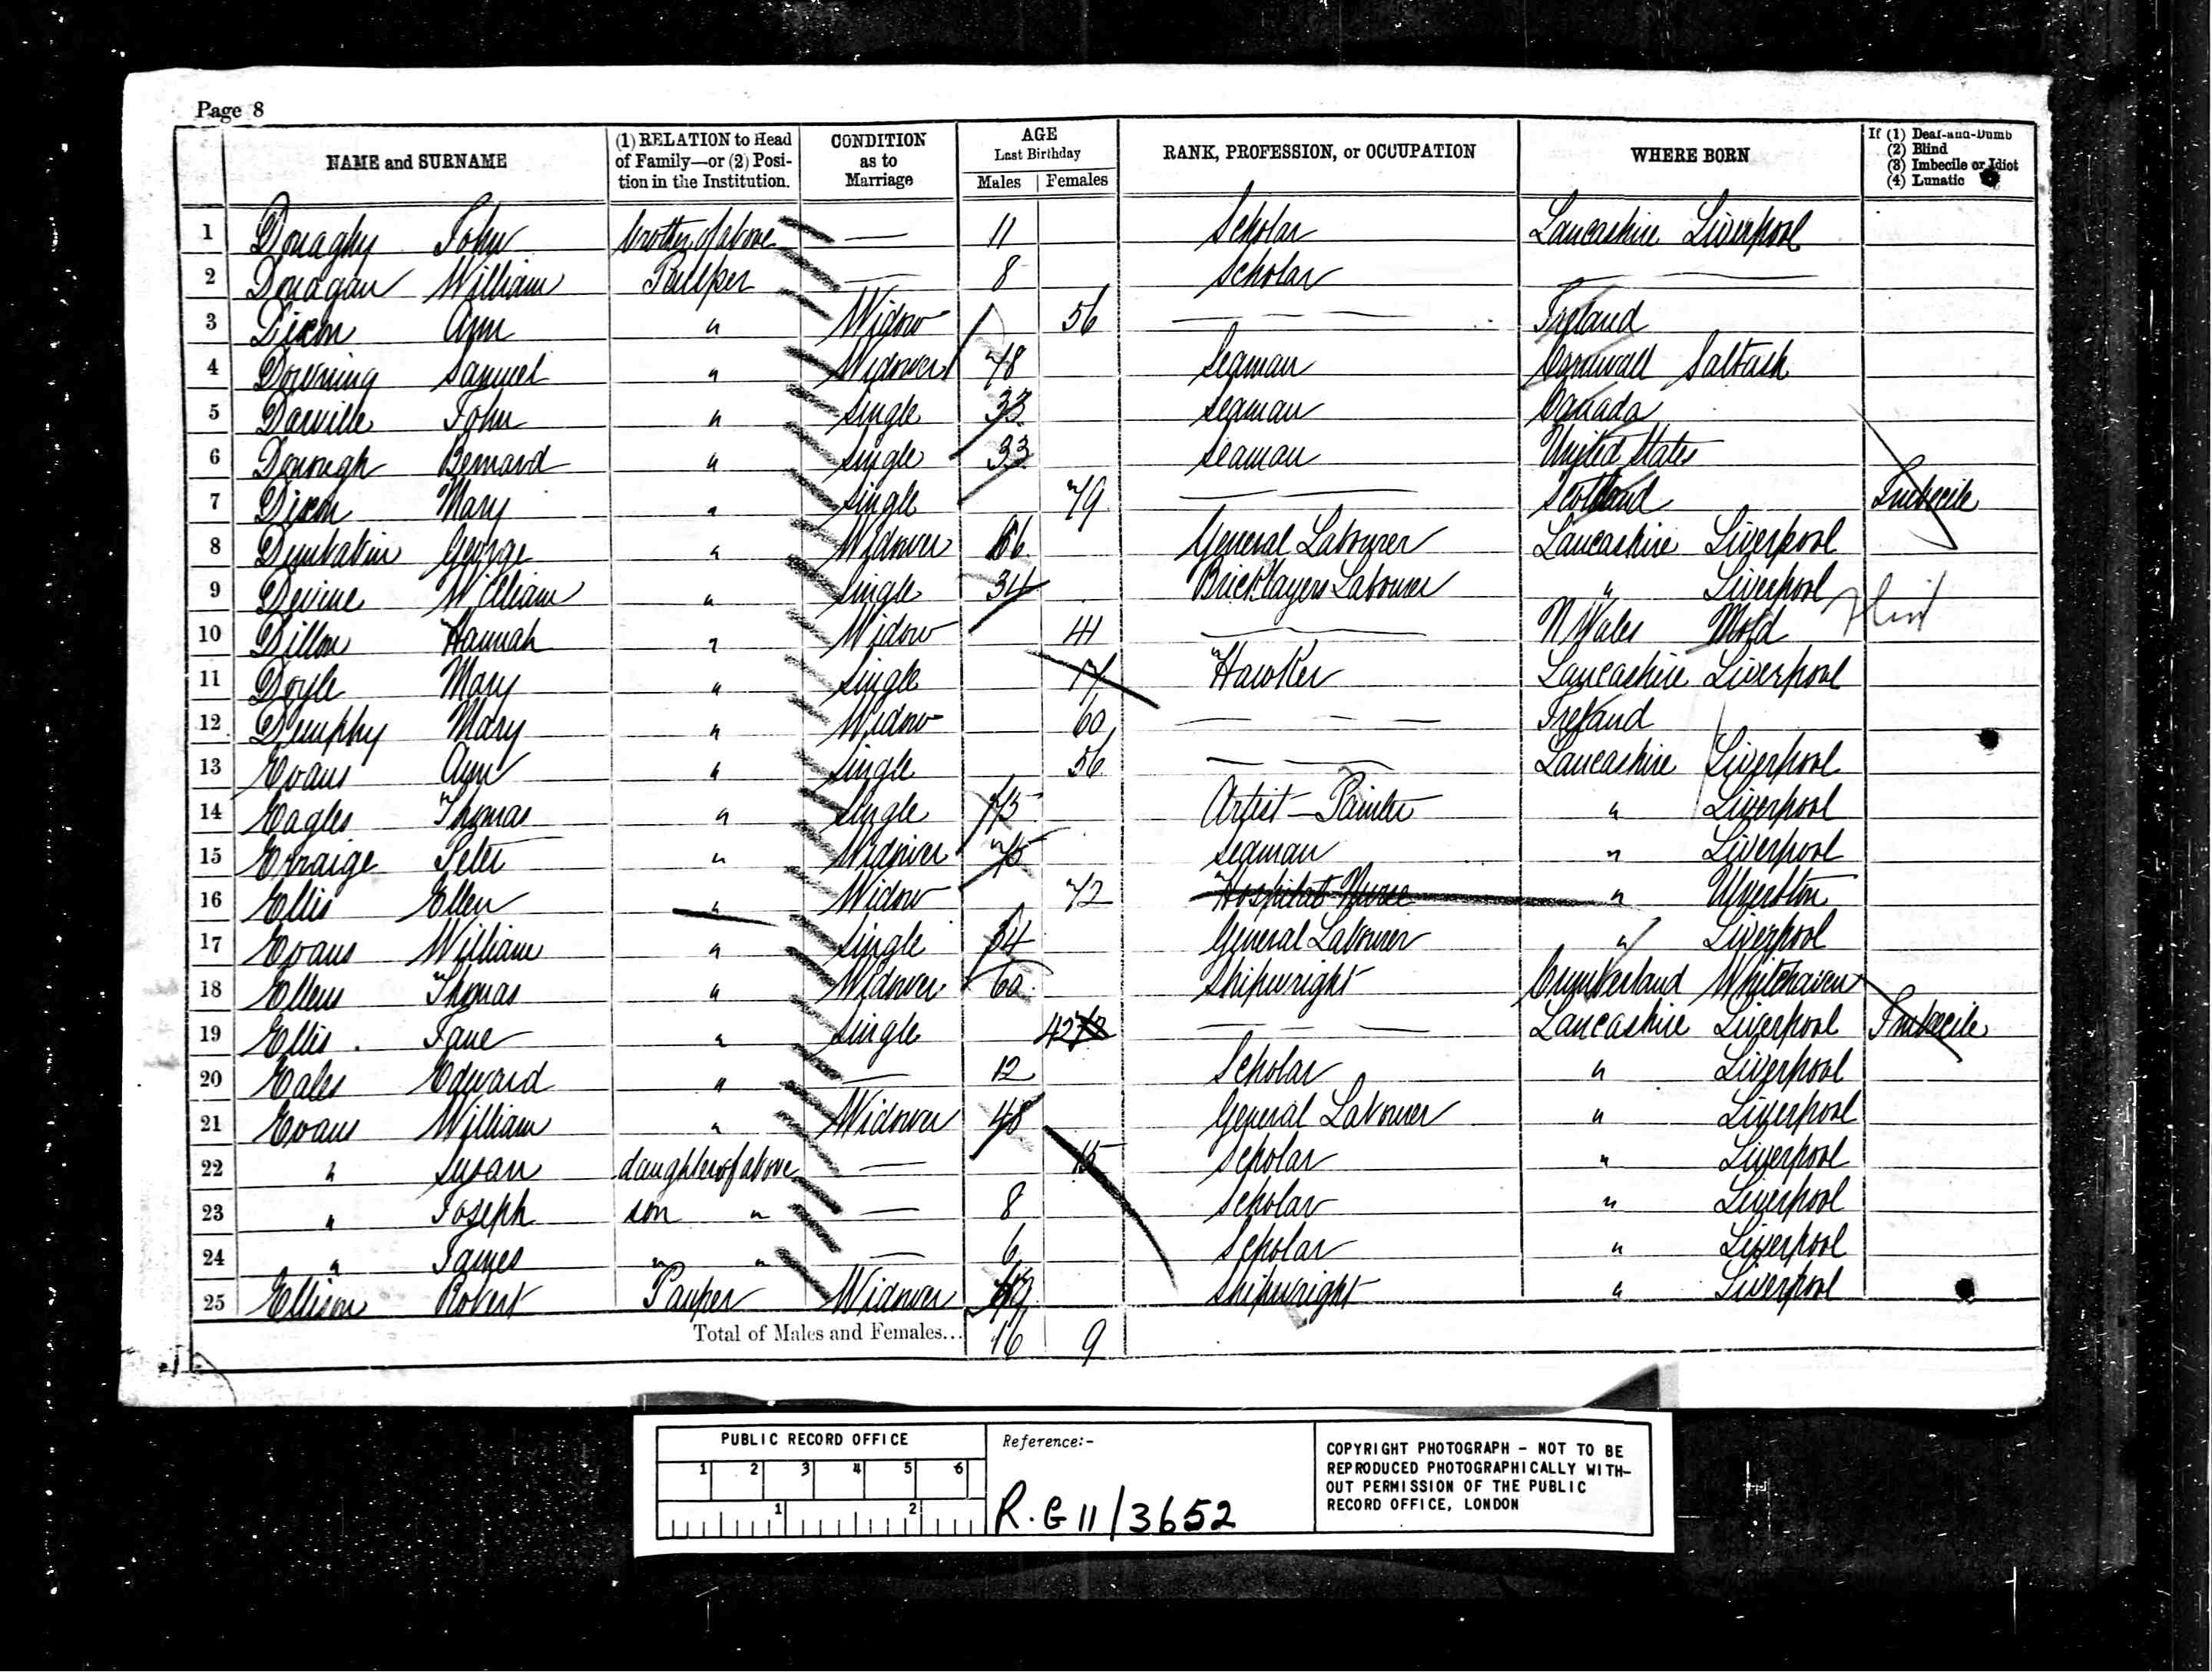 Page 8
NAME and SURNAME (1) RELATION to Head of Family—or (2) Position in the Institution. CONDITION as to Marriage AGE Last Birthday Males Females RANK, PROFESSION, or OCCUPATION WHERE BORN If (1) Deaf-and-Dumb (2) Blind (3) Imbecile or Idiot (4) Lunatic
1 Donaghy John brother of above — 11 Scholar Lancashire Liverpool
2 Donagan William Pauper — 8 Scholar — —
3 Dixon Ann " Widow 56 — — — Ireland
4 Downing Samuel " Widower 48 Seaman Cornwall Saltash
5 John " Single 33 Seaman Canada
6 Bernard " Single 33 Seaman United States
7 Dixon Mary " Single 79 — — Scotland Imbecile
8 George " Widower General Labourer Lancashire Liverpool
9 Devine William " Single 34 Bricklayers Labourer " Liverpool
10 Dillon Hannah " Widow 41 — N Wales Mold Flint
11 Doyle Mary " Single 71 Hawker Lancashire Liverpool
12 Dumphy Mary " Widow 60 — — — Ireland
13 Evans Ann " Single 56 — — Lancashire Liverpool
14 Eagles Thomas " Single Artist – Painter " Liverpool
15 Peter " Widower 75 Seaman " Liverpool
16 Ellis Ellen " Widow 72 Hospital Nurse " Ulverston
17 Evans William " Single General Labourer " Liverpool
18 Ellens Thomas " Widower 60 Shipwright Cumberland Whitehaven
19 Ellis Jane " Single 42 — — — Lancashire Liverpool Imbecile
20 Eales Edward " — 12 Scholar " Liverpool
21 Evans William " Widower 48 General Labourer " Liverpool
22 " Susan daughter of above — 15 Scholar " Liverpool
23 " Joseph son " — 8 Scholar " Liverpool
24 " James " " — 6 Scholar " Liverpool
25 Ellison Robert Pauper Widower Shipwright " Liverpool
Total of Males and Females... 16 9
PUBLIC RECORD OFFICE
1 2 3 4 5 6
1 2
Reference:-
R.G 11/3652
COPYRIGHT PHOTOGRAPH – NOT TO BE
REPRODUCED PHOTOGRAPHICALLY WITH-
OUT PERMISSION OF THE PUBLIC
RECORD OFFICE, LONDON